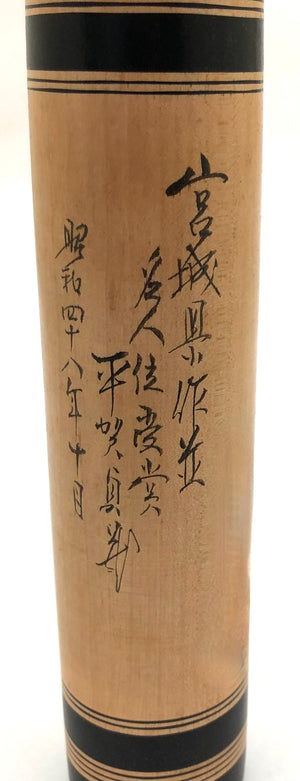 宮城県作並
名人位受賞
平賀貞蔵
昭和四十八年十月